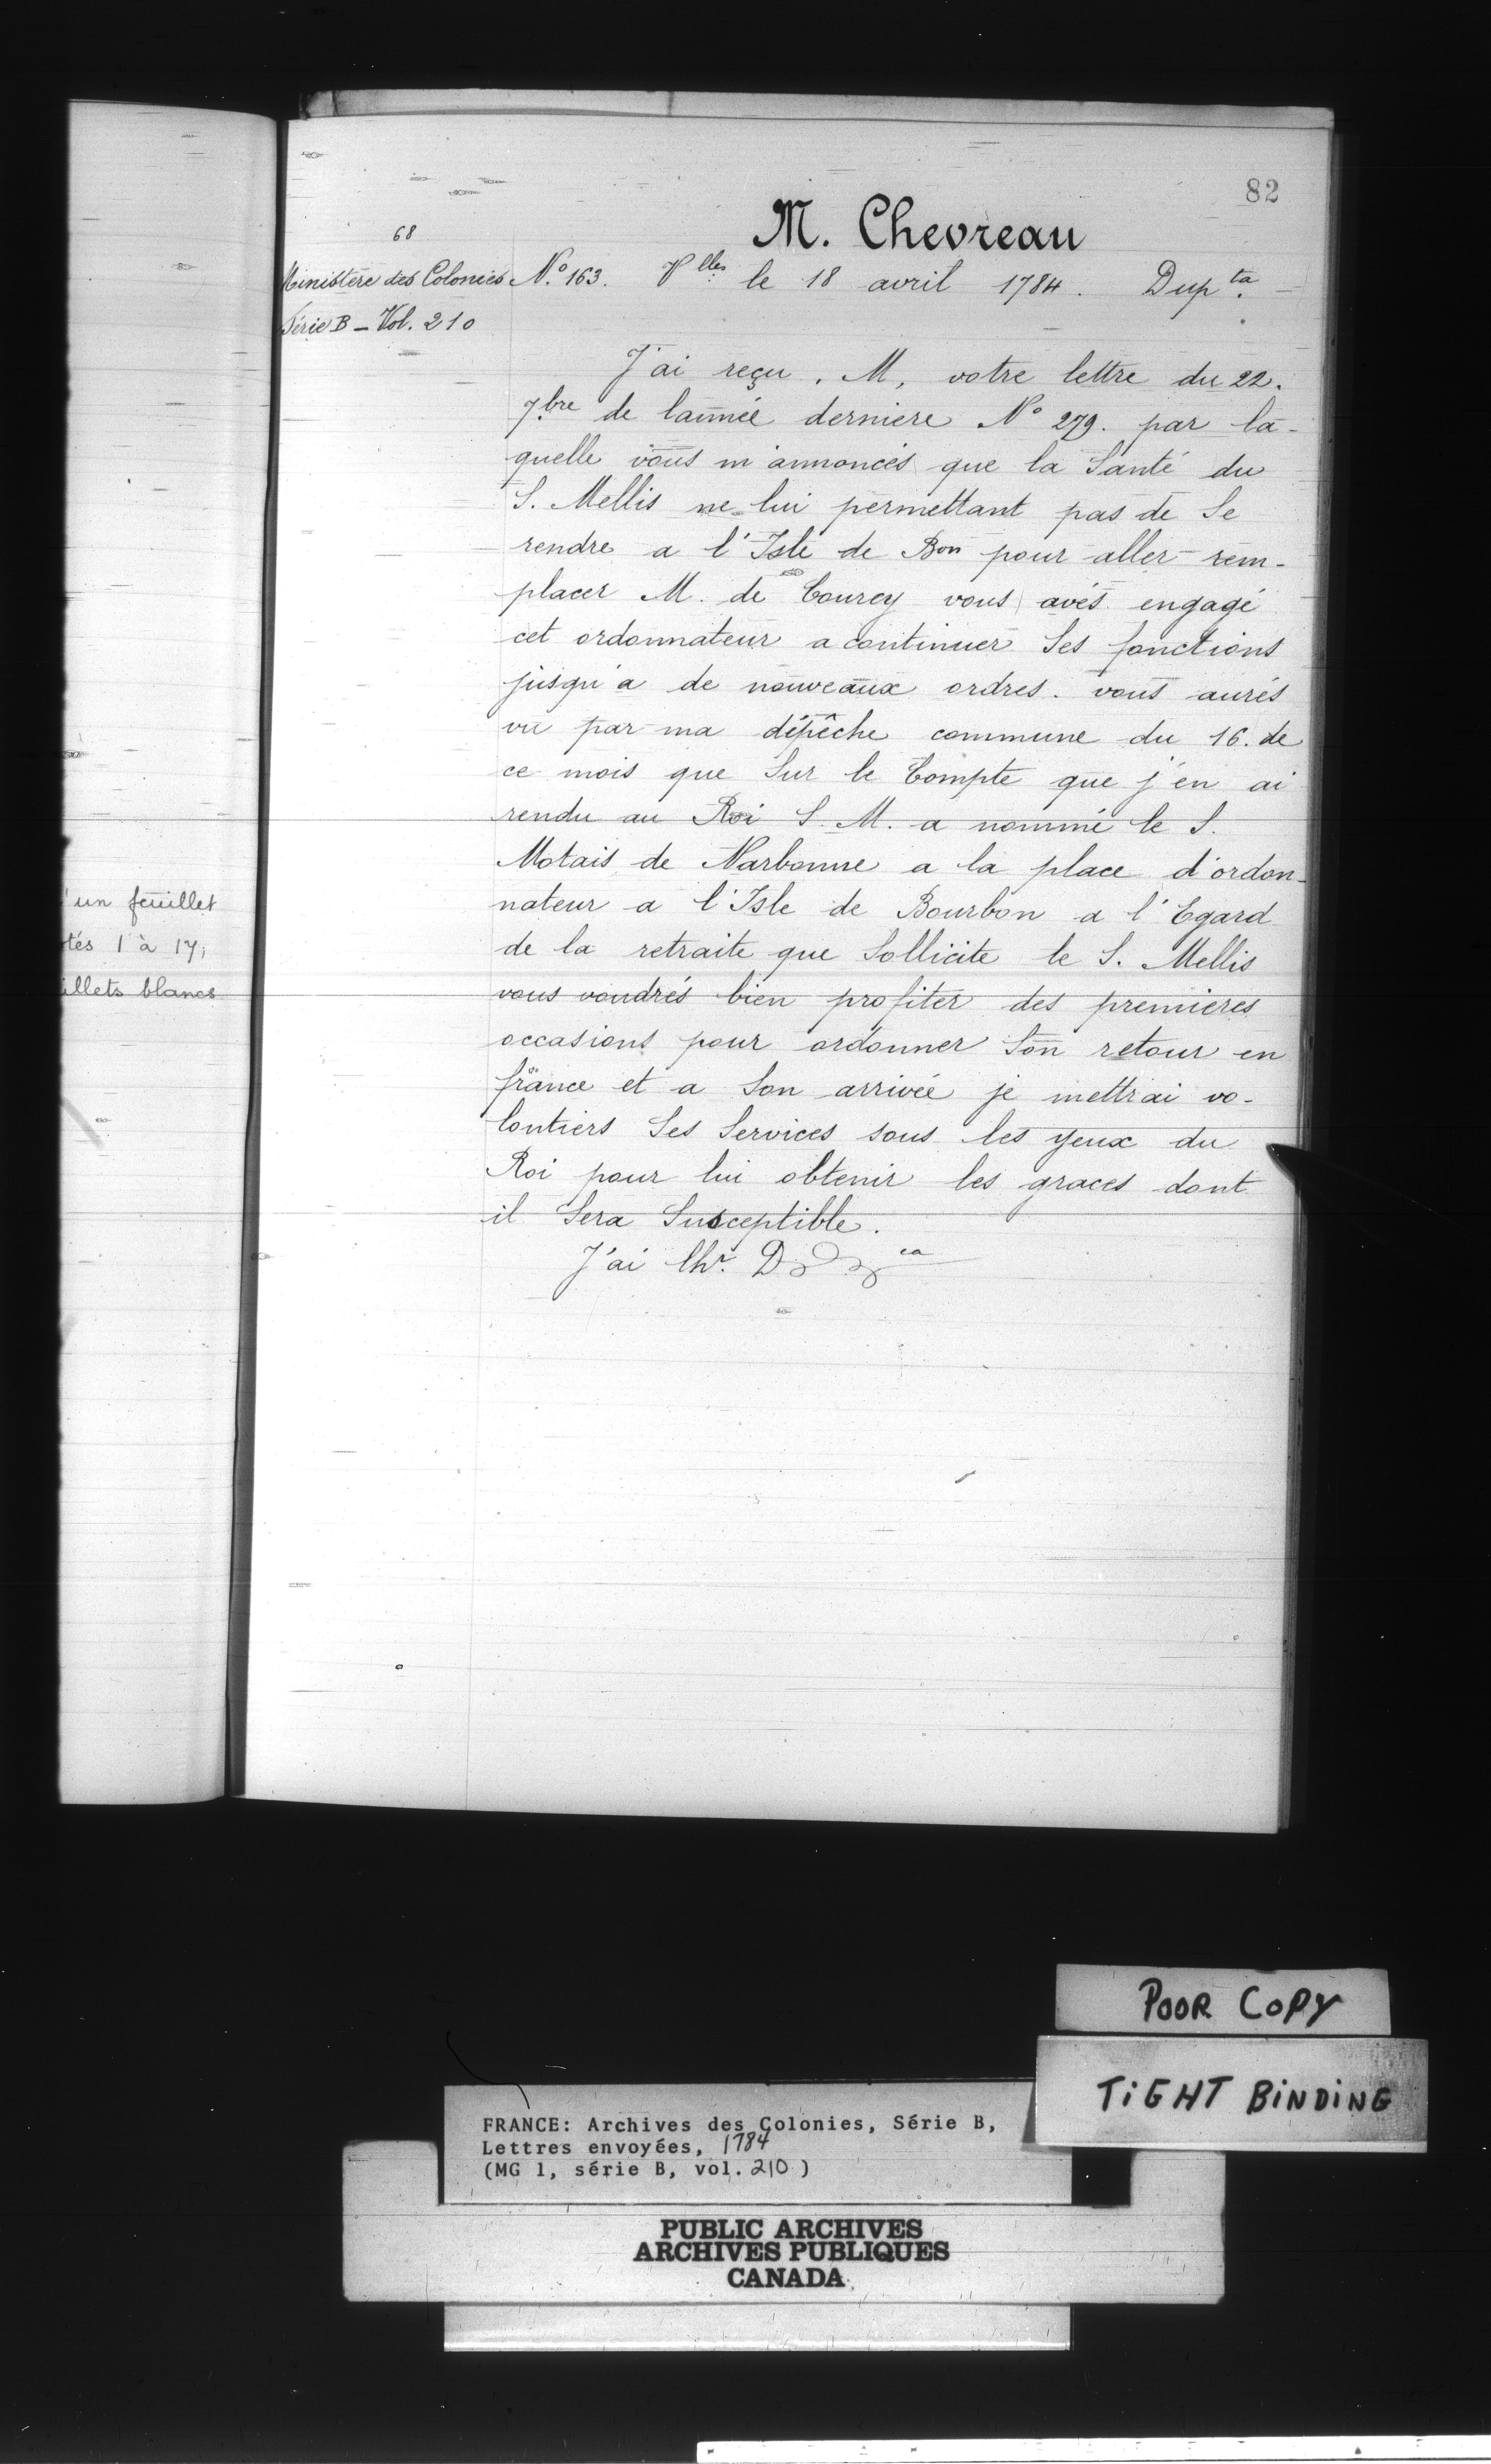 82
M. Chevreau
68
Ministère des Colonies
Série B - Vol. 210
N.º 163. V.lles le 18 avril 1784. Dup.ta
J'ai reçu, M, votre lettre du 22.
7.bre de lannée derniere Nº 279. par la-
quelle vous m'annoncés que la Santé du
S. Mellis ne lui permettant pas de Se
rendre a l'Isle de Bon pour aller rem-
placer M. de Courcy vous avés engagé
cet ordonnateur a continuer Ses fonctions
jusqu'a de nouveaux ordres. vous aurés
vu par ma dépêche commune du 16. de
ce mois que Sur le Compte que j'en ai
rendu au Roi S. M. a nommé le S.
Motais de Narbonne a la place d'ordon-
nateur a l'Isle de Bourbon a l'Egard
de la retraite que Sollicite le S. Mellis
vous voudrés bien profiter des premieres
occasions pour ordonner Son retour en
france et a Son arrivée je mettrai vo-
lontiers Ses Services sous les yeux du
Roi pour lui obtenir les graces dont
il Sera Susceptible.
J'ai lhr. D
'un feuillet
tés 1 à 17;
illets blancs
POOR COPY
TiGHT BiNDiNG
FRANCE: Archives des Colonies, Série B,
Lettres envoyées, 1784
(MG 1, série B, vol. 210)
PUBLIC ARCHIVES
ARCHIVES PUBLIQUES
CANADA